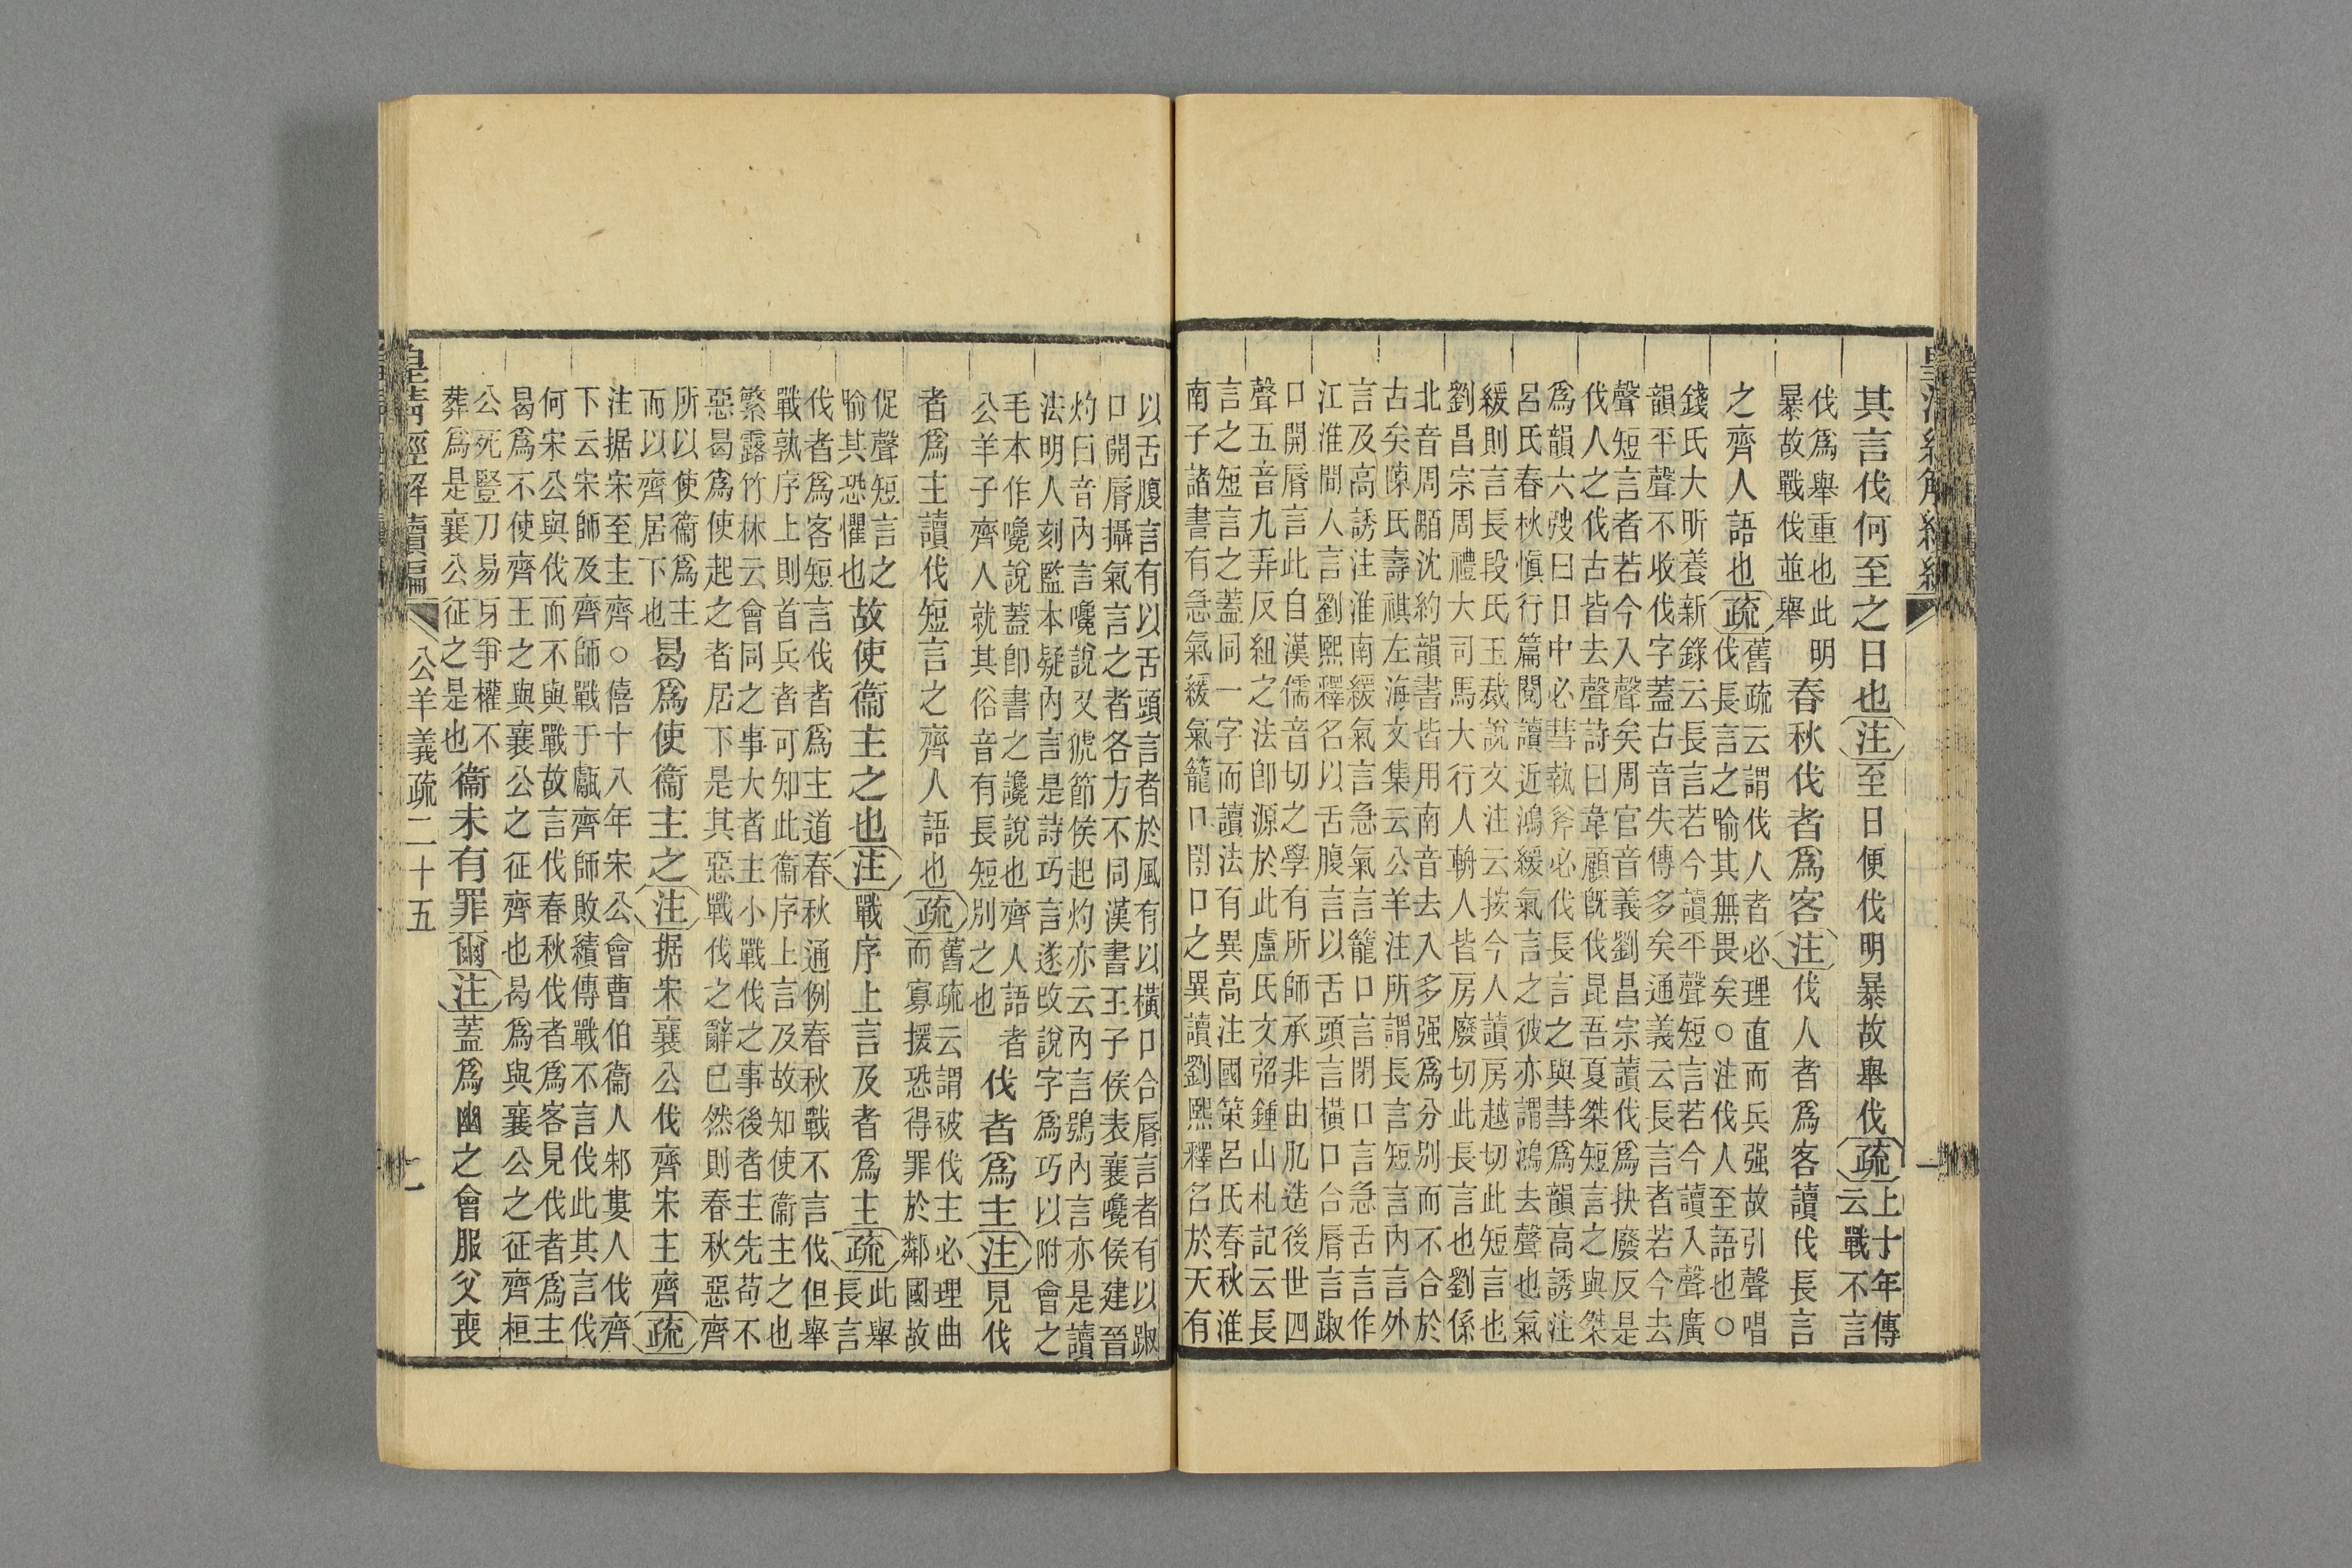 皇清經解續編
一
其言伐何至之日也注至日便伐明暴故舉伐疏
上十年傳
云戰不言
伐爲舉重也此明
暴故戰伐並舉
春秋伐者爲客注伐人者爲客讀伐長言
之齊人語也疏
舊疏云謂伐人者必理直而兵强故引聲唱
伐長言之喻其無畏矣○注伐人至語也○
錢氏大昕養新錄云長言若今讀平聲短言若今讀入聲廣
韻平聲不收伐字蓋古音失傳多矣通義云長言者若今去
聲短言者若今入聲矣周官音義劉昌宗讀伐爲抉廢反是
伐人之伐古皆去聲詩曰韋顧旣伐昆吾夏桀短言之與桀
爲韻六弢曰日中必彗執斧必伐長言之與彗爲韻高誘注
呂氏春秋愼行篇閱讀近鴻緩氣言之彼亦謂鴻去聲也氣
緩則言長段氏玉裁說文注云按今人讀房越切此短言也
劉昌宗周禮大司馬大行人輈人皆房廢切此長言也劉係
北音周顒沈約韻書皆用南音去入多强爲分别而不合於
古矣陳氏壽祺左海文集云公羊注所謂長言短言内言外
言及高誘注淮南緩氣言急氣言籠口言閉口言急舌言作
江淮間人言劉熙釋名以舌腹言以舌頭言橫口合脣言踧
口開脣言此自漢儒音切之學有所師承非由肊造後世四
聲五音九弄反紐之法卽源於此盧氏文弨鍾山札記云長
言之短言之蓋同一字而讀法有異高注國策呂氏春秋淮
南子諸書有急氣緩氣籠口閉口之異讀劉熙釋名於天有
以舌腹言有以舌頭言者於風有以橫口合脣言者有以踧
口開脣攝氣言之者各方不同漢書王子侯表襄嚵侯建晉
灼曰音内言嚵說又猇節侯起灼亦云内言鴞内言亦是讀
法明人刻監本疑内言是詩巧言遂改說字爲巧以附會之
毛本作嚵說蓋卽書之讒說也齊人語者
公羊子齊人就其俗音有長短别之也
伐者爲主注見伐
者爲主讀伐短言之齊人語也疏
舊疏云謂被伐主必理曲
而寡援恐得罪於鄰國故
促聲短言之
喻其恐懼也
故使衞主之也注戰序上言及者爲主疏
此舉
長言
伐者爲客短言伐者爲主道春秋通例春秋戰不言伐但舉
戰孰序上則首兵者可知此衞序上言及故知使衞主之也
繁露竹林云會同之事大者主小戰伐之事後者主先苟不
惡曷爲使起之者居下是其惡戰伐之辭已然則春秋惡齊
所以使衞爲主
而以齊居下也
曷爲使衞主之注据宋襄公伐齊宋主齊疏
注据宋至主齊○僖十八年宋公會曹伯衞人邾婁人伐齊
下云宋師及齊師戰于甗齊師敗績傳戰不言伐此其言伐
何宋公與伐而不與戰故言伐春秋伐者爲客見伐者爲主
曷爲不使齊主之與襄公之征齊也曷爲與襄公之征齊桓
公死豎刀易牙爭權不
葬爲是襄公征之是也
衞未有罪爾注蓋爲幽之會服父喪
皇清經解續編
公羊義疏二十五
二